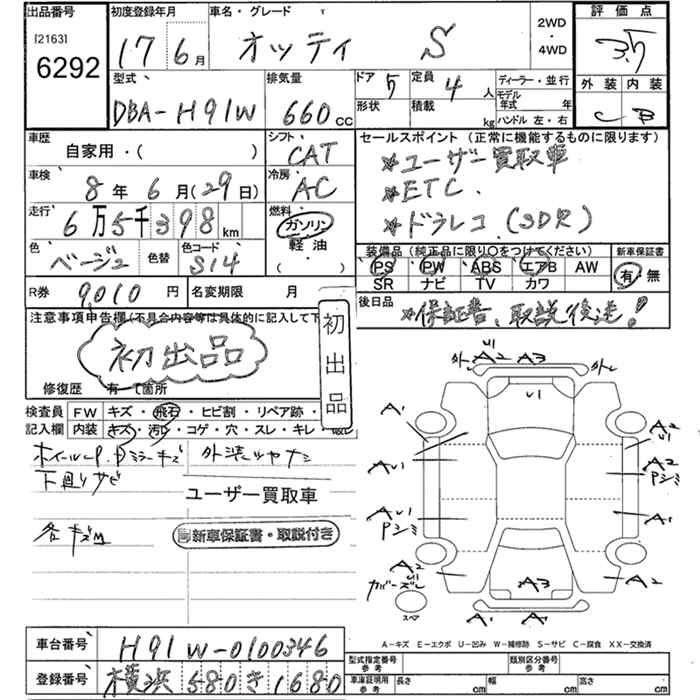 出品番号
[2163]
6292
初度登録年月
17年6月
車名・グレード
オッティ S
2WD
・
4WD
評価点
3.5
外装 内装
C B
型式
DBA-H91W
排気量
660cc
ドア 5
形状
定員 4人
積載 kg
ディーラー・並行
モデル年式 年
ハンドル 左・右
車歴
自家用・( )
シフト
CAT
セールスポイント (正常に機能するものに限ります)
※ユーザー買取車
※ETC.
※ドラレコ (SDR)
車検
8年6月(29日)
冷房
AC
走行
6万5千398km
燃料
ガソリン
軽油
( )
色
ベージュ
色替
色コード
S14
装備品 (純正品に限り〇をつけてください)
PS PW ABS エアB AW
SR ナビ TV カワ
新車保証書
有・無
R券 9,010円
名変期限 月
後日品
※保証書、取説後送!
注意事項申告欄(不具合内容等は具体的に記入して下
初出品
初出品
修復歴 有 て箇所
検査員記入欄
FW キズ・飛石・ヒビ割・リペア跡・
内装 キズ・汚れ・コゲ・穴・スレ・キレ・破レ
ホイールP.Dミラーキズ 外装ツヤナシ
下廻りサビ
ユーザー買取車
新車保証書・取説付き
外レ A2 A3 外レ
U1
A1
A2
U1
AU1
A2
Pシミ
AU1
Pシミ
A1
A2
カバーズレ
A2
A3
スペア
A1 A1
A-キズ E-エクボ U-凹み W-補修跡 S-サビ C-腐食 XX-交換済
車台番号
H91W-0100346
登録番号
横浜580き1680
型式指定番号 参考
類別区分番号 参考
車庫証明用 参考
長さ cm
幅 cm
高さ cm